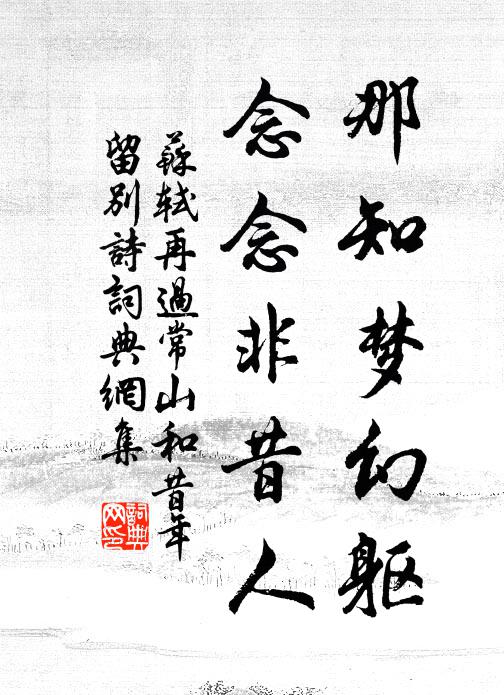 那知梦幻躯
念念非昔人
蘇軾再過常山和昔年
留別詩詞典網集
詞典
网印